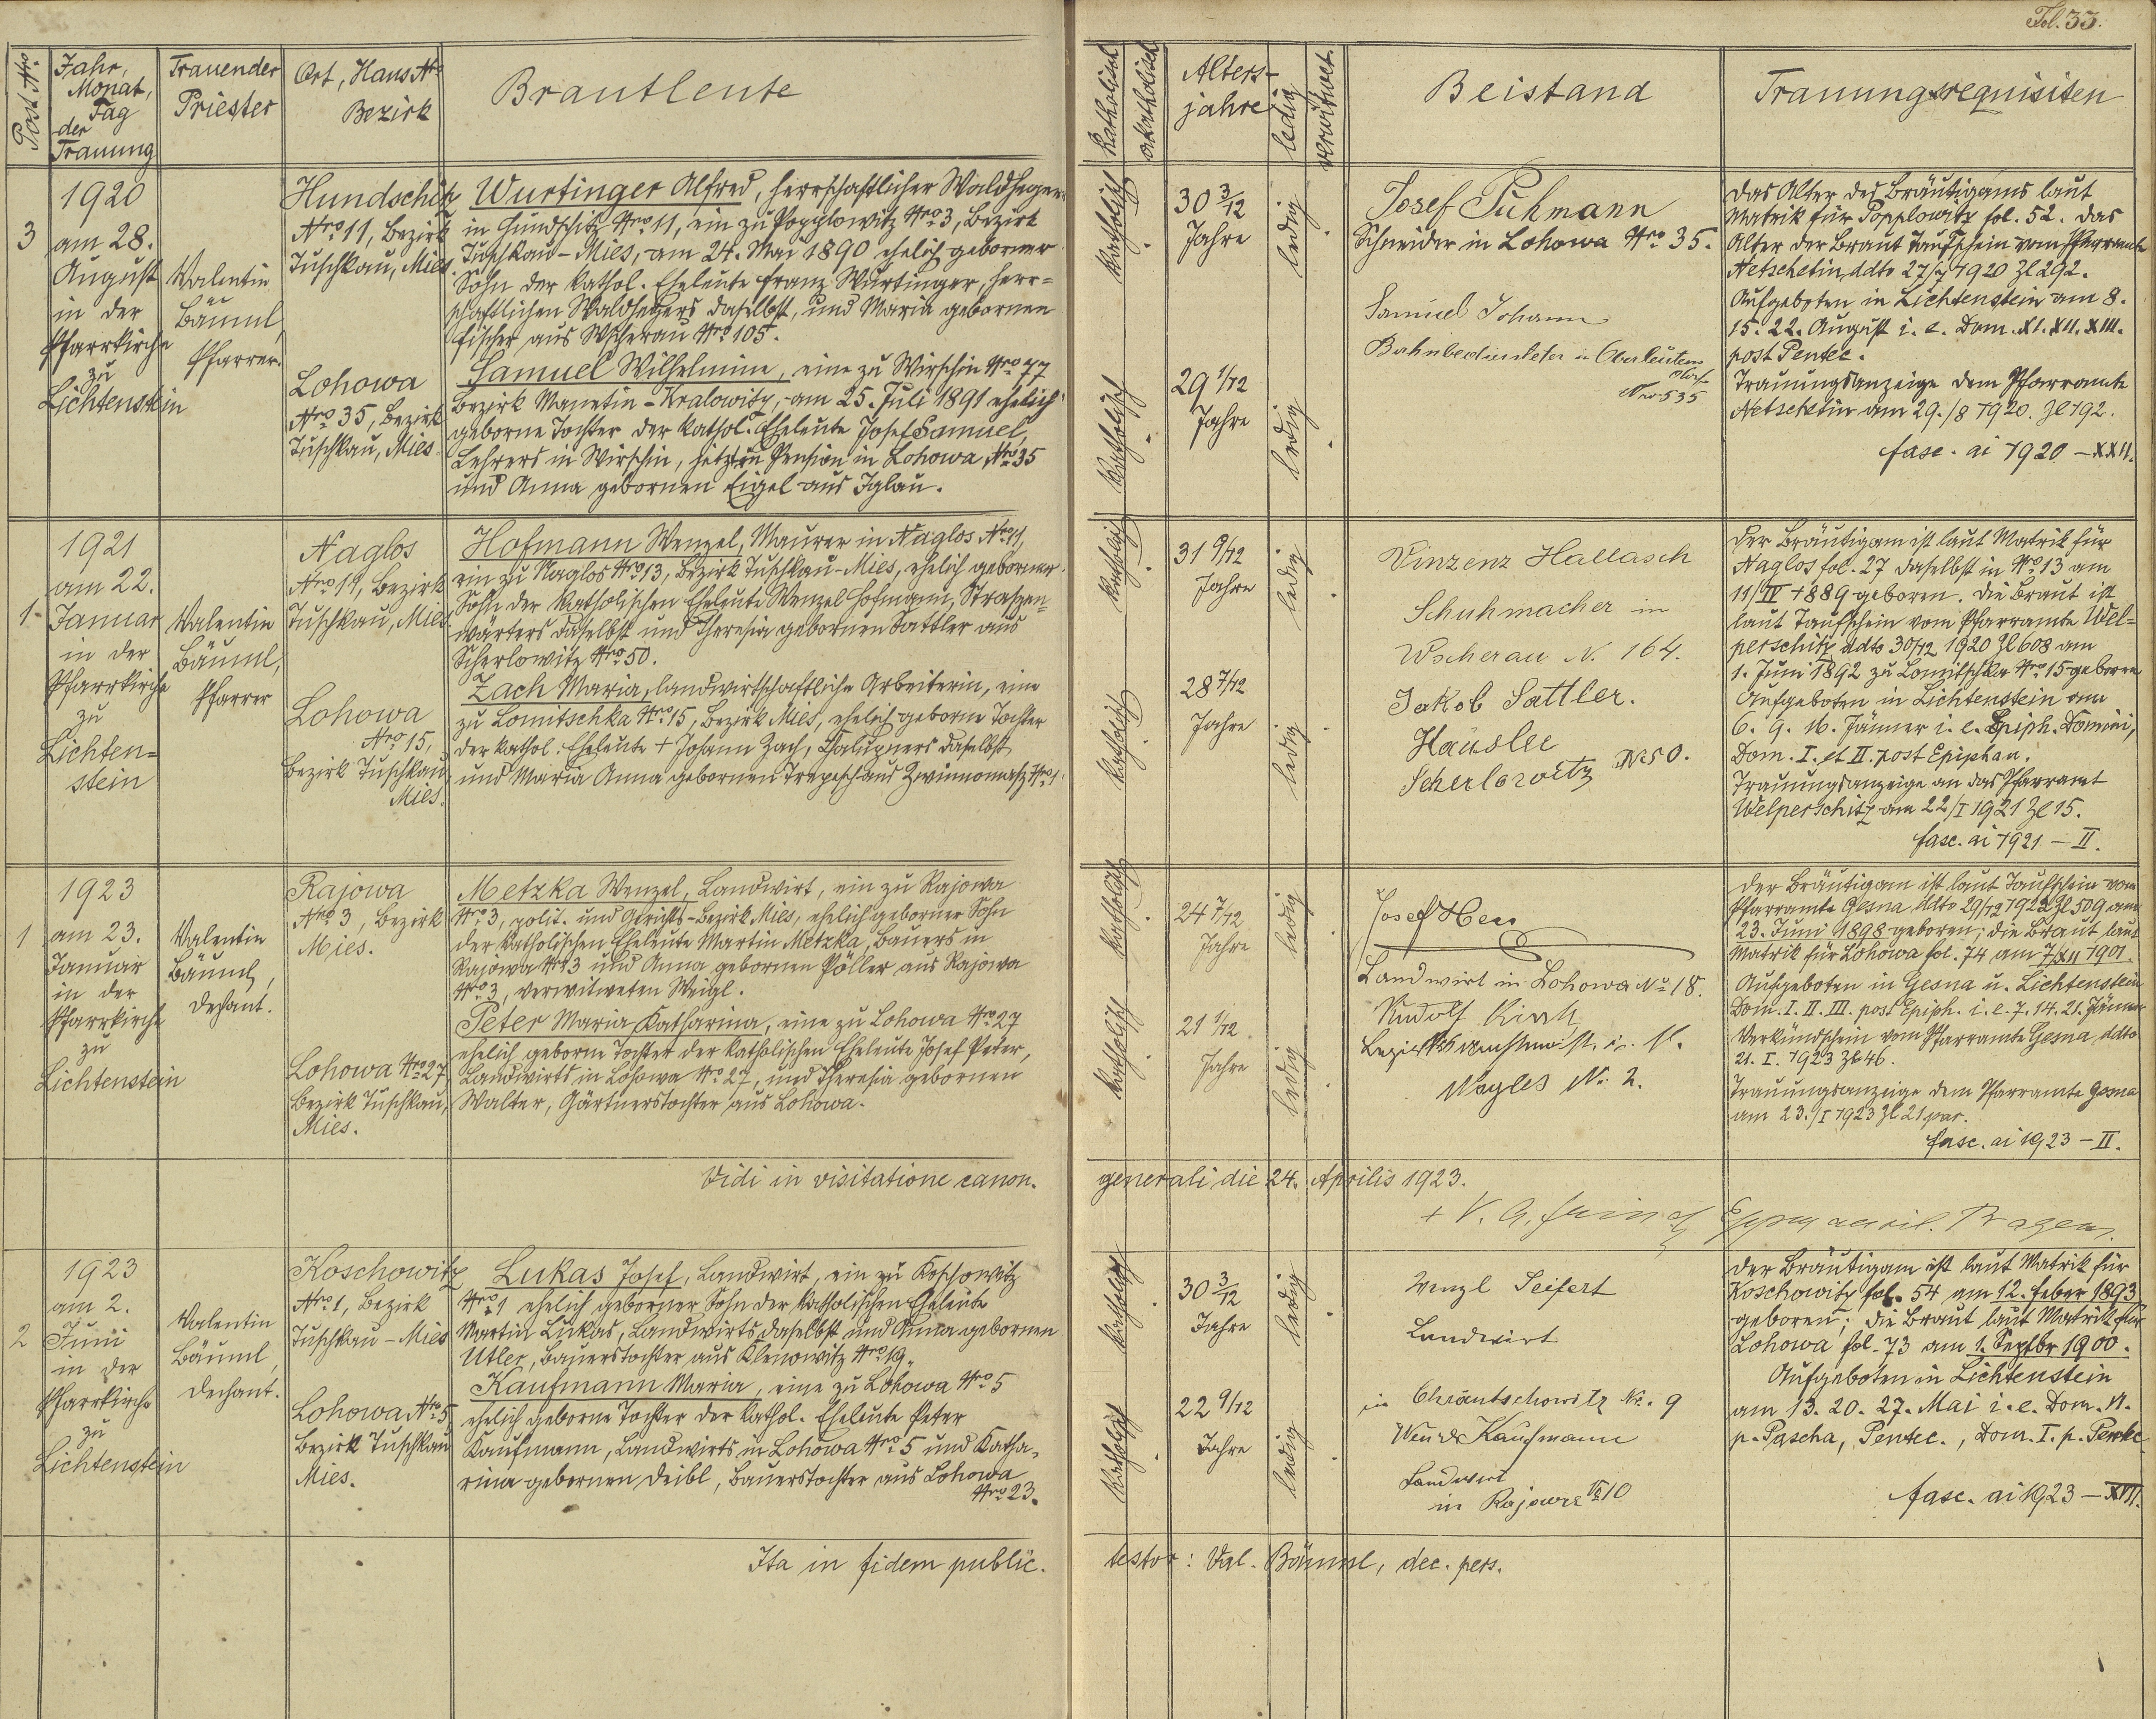 Fol. 33.
Post Nro.
Jahr,
Monat,
Tag
der
Trauung
Trauender
Priester
Ort, Haus Nro
Bezirk
Brautleute
Katholisch
akatholisch
Alters-
jahre
ledig
verwitwet.
Beistand
Trauungsrequisiten
3
1920
am 28.
August
in der
Pfarrkirche
zu
Lichtenstein
Valentin
Bäuml,
Pfarrer.
Hundschitz
Nro 11, Bezirk
Tuschkau, Mies.
Lohowa
Nro 35, Bezirk
Tuschkau, Mies.
Wurtinger Alfred, herrschaftlicher Waldheger
in Hundschitz Nro 11, ein zu Popplowitz Nro 3, Bezirk
Tuschkau-Mies, am 24. Mai 1890 ehelich geborner
Sohn der kathol. Eheleute Franz Wurtinger, herr=
schaftlichen Waldhegers daselbst, und Maria gebornen
Fischer aus Wscherau Nro 105.
Samuel Wilhelmine, eine zu Wirschin Nro 77
Bezirk Manetin-Kralowitz, am 25. Juli 1891 ehelich
geborne Tochter der kathol. Eheleute Josef Samuel,
Lehrers in Wirschin, jetzt in Pension in Lohowa Nro 35
und Anna gebornen Eigel aus Iglau.
katholisch
katholisch
30 3/12
Jahre
29 1/12
Jahre
ledig
ledig
Josef Puhmann
Schneider in Lohowa Nro 35.
Samuel Johann
Bahnbediensteter in Oberleutens
Nro 535
das Alter des Bräutigams laut
Matrik für Popplowitz fol. 52. das
Alter der Braut Taufschein vom Pfarramte
Netschetin ddto 27/7 1920 Zl 292.
Aufgeboten in Lichtenstein am 8.
15. 22. August i. e. Dom. XI. XII. XIII.
post Pentec.
Trauungsanzeige dem Pfarramte
Netschetin am 29./8 1920. Zl 192.
fasc. ai 1920 - XXII.
1
1921
am 22.
Januar
in der
Pfarrkirche
zu
Lichten=
stein
Valentin
Bäuml,
Pfarrer
Naglos
Nro 11, Bezirk
Tuschkau, Mies
Lohowa
Nro 15,
Bezirk Tuschkau
Mies.
Hofmann Wenzel, Maurer in Naglos Nro 11,
ein zu Naglos Nro 13, Bezirk Tuschkau-Mies, ehelich geborner
Sohn der katholischen Eheleute Wenzel Hofmann, Strassen=
wärters daselbst und Theresia gebornen Sattler aus
Scherlowitz Nro 50.
Zach Maria, landwirtschaftliche Arbeiterin, eine
zu Lomitschka Nro 15, Bezirk Mies, ehelich geborne Tochter
der kathol. Eheleute + Johann Zach, Chalupners daselbst
und Maria Anna gebornen Trapesch aus Zwinomass Nro 1.
katholisch
katholisch
31 9/12
Jahre
28 7/12
Jahre
ledig
ledig
Vinzenz Hallasch
Schuhmacher in
Wscherau N. 164.
Jakob Sattler.
Häusler
Scherlowitz No 50.
Der Bräutigam ist laut Matrik für
Naglos fol. 27 daselbst in Nro 13 am
11/IV 1889 geboren. Die Braut ist
laut Taufschein vom Pfarramte Wel=
perschitz ddto 30/12 1920 Zl 608 am
1. Juni 1892 zu Lomitschka Nro 15 geboren
Aufgeboten in Lichtenstein am
6. 9. 16. Jänner i. e. Epiph. Domini,
Dom. I. et II. post Epiphan.
Trauungsanzeige an das Pfarramt
Welperschitz am 22/I 1921 Zl 15.
fasc. ai 1921 - II.
1
1923
am 23.
Januar
in der
Pfarrkirche
zu
Lichtenstein
Valentin
Bäuml,
Dechant.
Rajowa
Nro 3, Bezirk
Mies.
Lohowa Nro 27
Bezirk Tuschkau,
Mies.
Metzka Wenzel, Landwirt, ein zu Rajowa
Nro 3, polit. und Gerichts-Bezirk Mies, ehelich geborner Sohn
der katholischen Eheleute Martin Metzka, Bauers in
Rajowa Nro 3 und Anna gebornen Pöller aus Rajowa
Nro 3, verwitweten Weigl.
Peter Maria Katharina, eine zu Lohowa Nro 27
ehelich geborne Tochter der katholischen Eheleute Josef Peter,
Landwirts in Lohowa Nro 27, und Theresia gebornen
Walter, Gärtnerstochter aus Lohowa.
katholisch
katholisch
24 7/12
Jahre
21 1/12
Jahre
ledig
ledig
Josef Hess
Landwirt in Lohowa No 18.
Rudolf
No. 2.
Der Bräutigam ist laut Taufschein vom
Pfarramte Gesna ddto 29/12 1922 Zl 509 am
23. Juni 1898 geboren; die Braut laut
Matrik für Lohowa fol. 74 am 7/XII 1901.
Aufgeboten in Gesna u. Lichtenstein
Dom. I. II. III. post Epiph. i. e. 7. 14. 21. Jänner
Verkündschein vom Pfarramte Gesna ddto
21. I. 1923 Zl 46.
Trauungsanzeige dem Pfarramte Gesna
am 23./I 1923 Zl 21 par.
fasc. ai 1923 - II.
Vidi in visitatione canon. generali die 24. Aprilis 1923.
2
1923
am 2.
Juni
in der
Pfarrkirche
zu
Lichtenstein
Valentin
Bäuml,
Dechant.
Koschowitz
Nro 1, Bezirk
Tuschkau - Mies
Lohowa, Nro 5
Bezirk Tuschkau
Mies.
Lukas Josef, Landwirt, ein zu Koschowitz
Nro 1 ehelich geborner Sohn der katholischen Eheleute
Martin Lukas, Landwirts daselbst und Anna gebornen
Utler, Bauerstochter aus Klenowitz Nro 19.
Kaufmann Maria, eine zu Lohowa Nro 5
ehelich geborne Tochter der kathol. Eheleute Peter
Kaufmann, Landwirts in Lohowa Nro 5 und Katha=
rina gebornen Deibl, Bauerstochter aus Lohowa
Nro 23.
katholisch
katholisch
30 3/12
Jahre
22 9/12
Jahre
ledig
ledig
Wenzl Seifert
Landwirt
in Chrantschowitz No. 9
Wenzl Kaufmann
Landwirt
in Rajowa No 10
Der Bräutigam ist laut Matrik für
Koschowitz fol. 54 am 12. Feber 1893
geboren; die Braut laut Matrik für
Lohowa fol. 73 am 1. Septbr 1900.
Aufgeboten in Lichtenstein
am 13. 20. 27. Mai i. e. Dom. VI.
p. Pascha, Pentec., Dom. I. p. Pentec
fasc. ai 1923 - XVII.
Ita in fidem public. testor: Val. Bäuml, dec. pers.